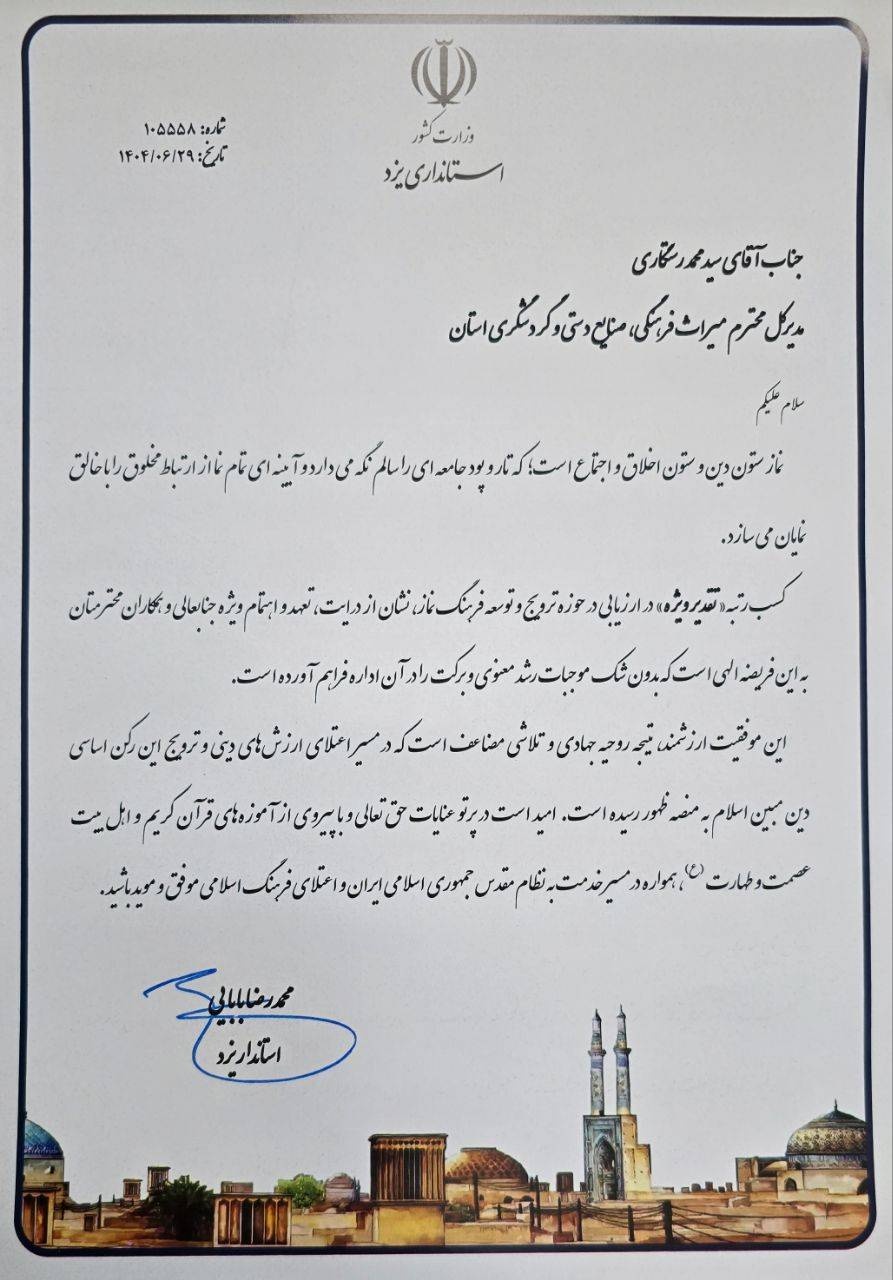 وزارت کشور
استانداری یزد
شماره: ۱۰۵۵۵۸
تاریخ: ۱۴۰۴/۰۶/۲۹
جناب آقای سید محمد رستگاری
مدیرکل محترم میراث فرهنگی، صنایع دستی و گردشگری استان
سلام علیکم
نماز ستون دین و ستون اخلاق و اجتماع است؛ که تار و پود جامعه ای را سالم نگه می دارد و آیینه ای تمام نما از ارتباط مخلوق را با خالق
نمایان می سازد.
کسب رتبه «تقدیر ویژه» در ارزیابی در حوزه ترویج و توسعه فرهنگ نماز، نشان از درایت، تعهد و اهتمام ویژه جنابعالی و همکاران محترمتان
به این فریضه الهی است که بدون شک موجبات رشد معنوی و برکت را در آن اداره فراهم آورده است.
این موفقیت ارزشمند، نتیجه روحیه جهادی و تلاشی مضاعف است که در مسیر اعتلای ارزش های دینی و ترویج این رکن اساسی
دین مبین اسلام به منصه ظهور رسیده است. امید است در پرتو عنایات حق تعالی و با پیروی از آموزه های قرآن کریم و اهل بیت
عصمت و طهارت (ع)، همواره در مسیر خدمت به نظام مقدس جمهوری اسلامی ایران و اعتلای فرهنگ اسلامی موفق و موید باشید.
محمدرضا بابایی
استاندار یزد